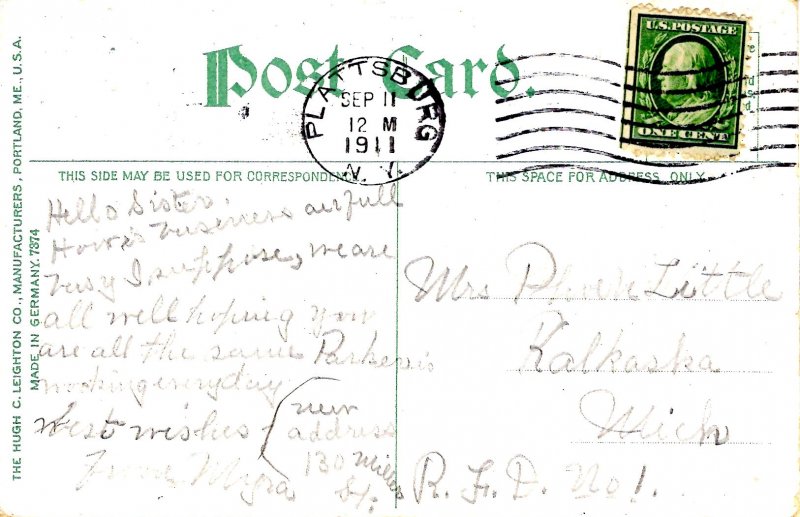 Post Card.
U.S. POSTAGE
ONE CENT
PLATTSBURG
SEP 11
12 M
1911
N. Y.
THIS SIDE MAY BE USED FOR CORRESPONDENCE
THIS SPACE FOR ADDRESS ONLY
THE HUGH C. LEIGHTON CO., MANUFACTURERS, PORTLAND, ME., U.S.A.
MADE IN GERMANY. 7374
Hello Sister.
How's business airfull
busy I suppose, we are
all well hoping you
are all the same
working everyday
Best wishes
From Myra
new
address
130 Miller
St.
Mrs Little
Kalkaska
Mich
R. F. D. No 1.